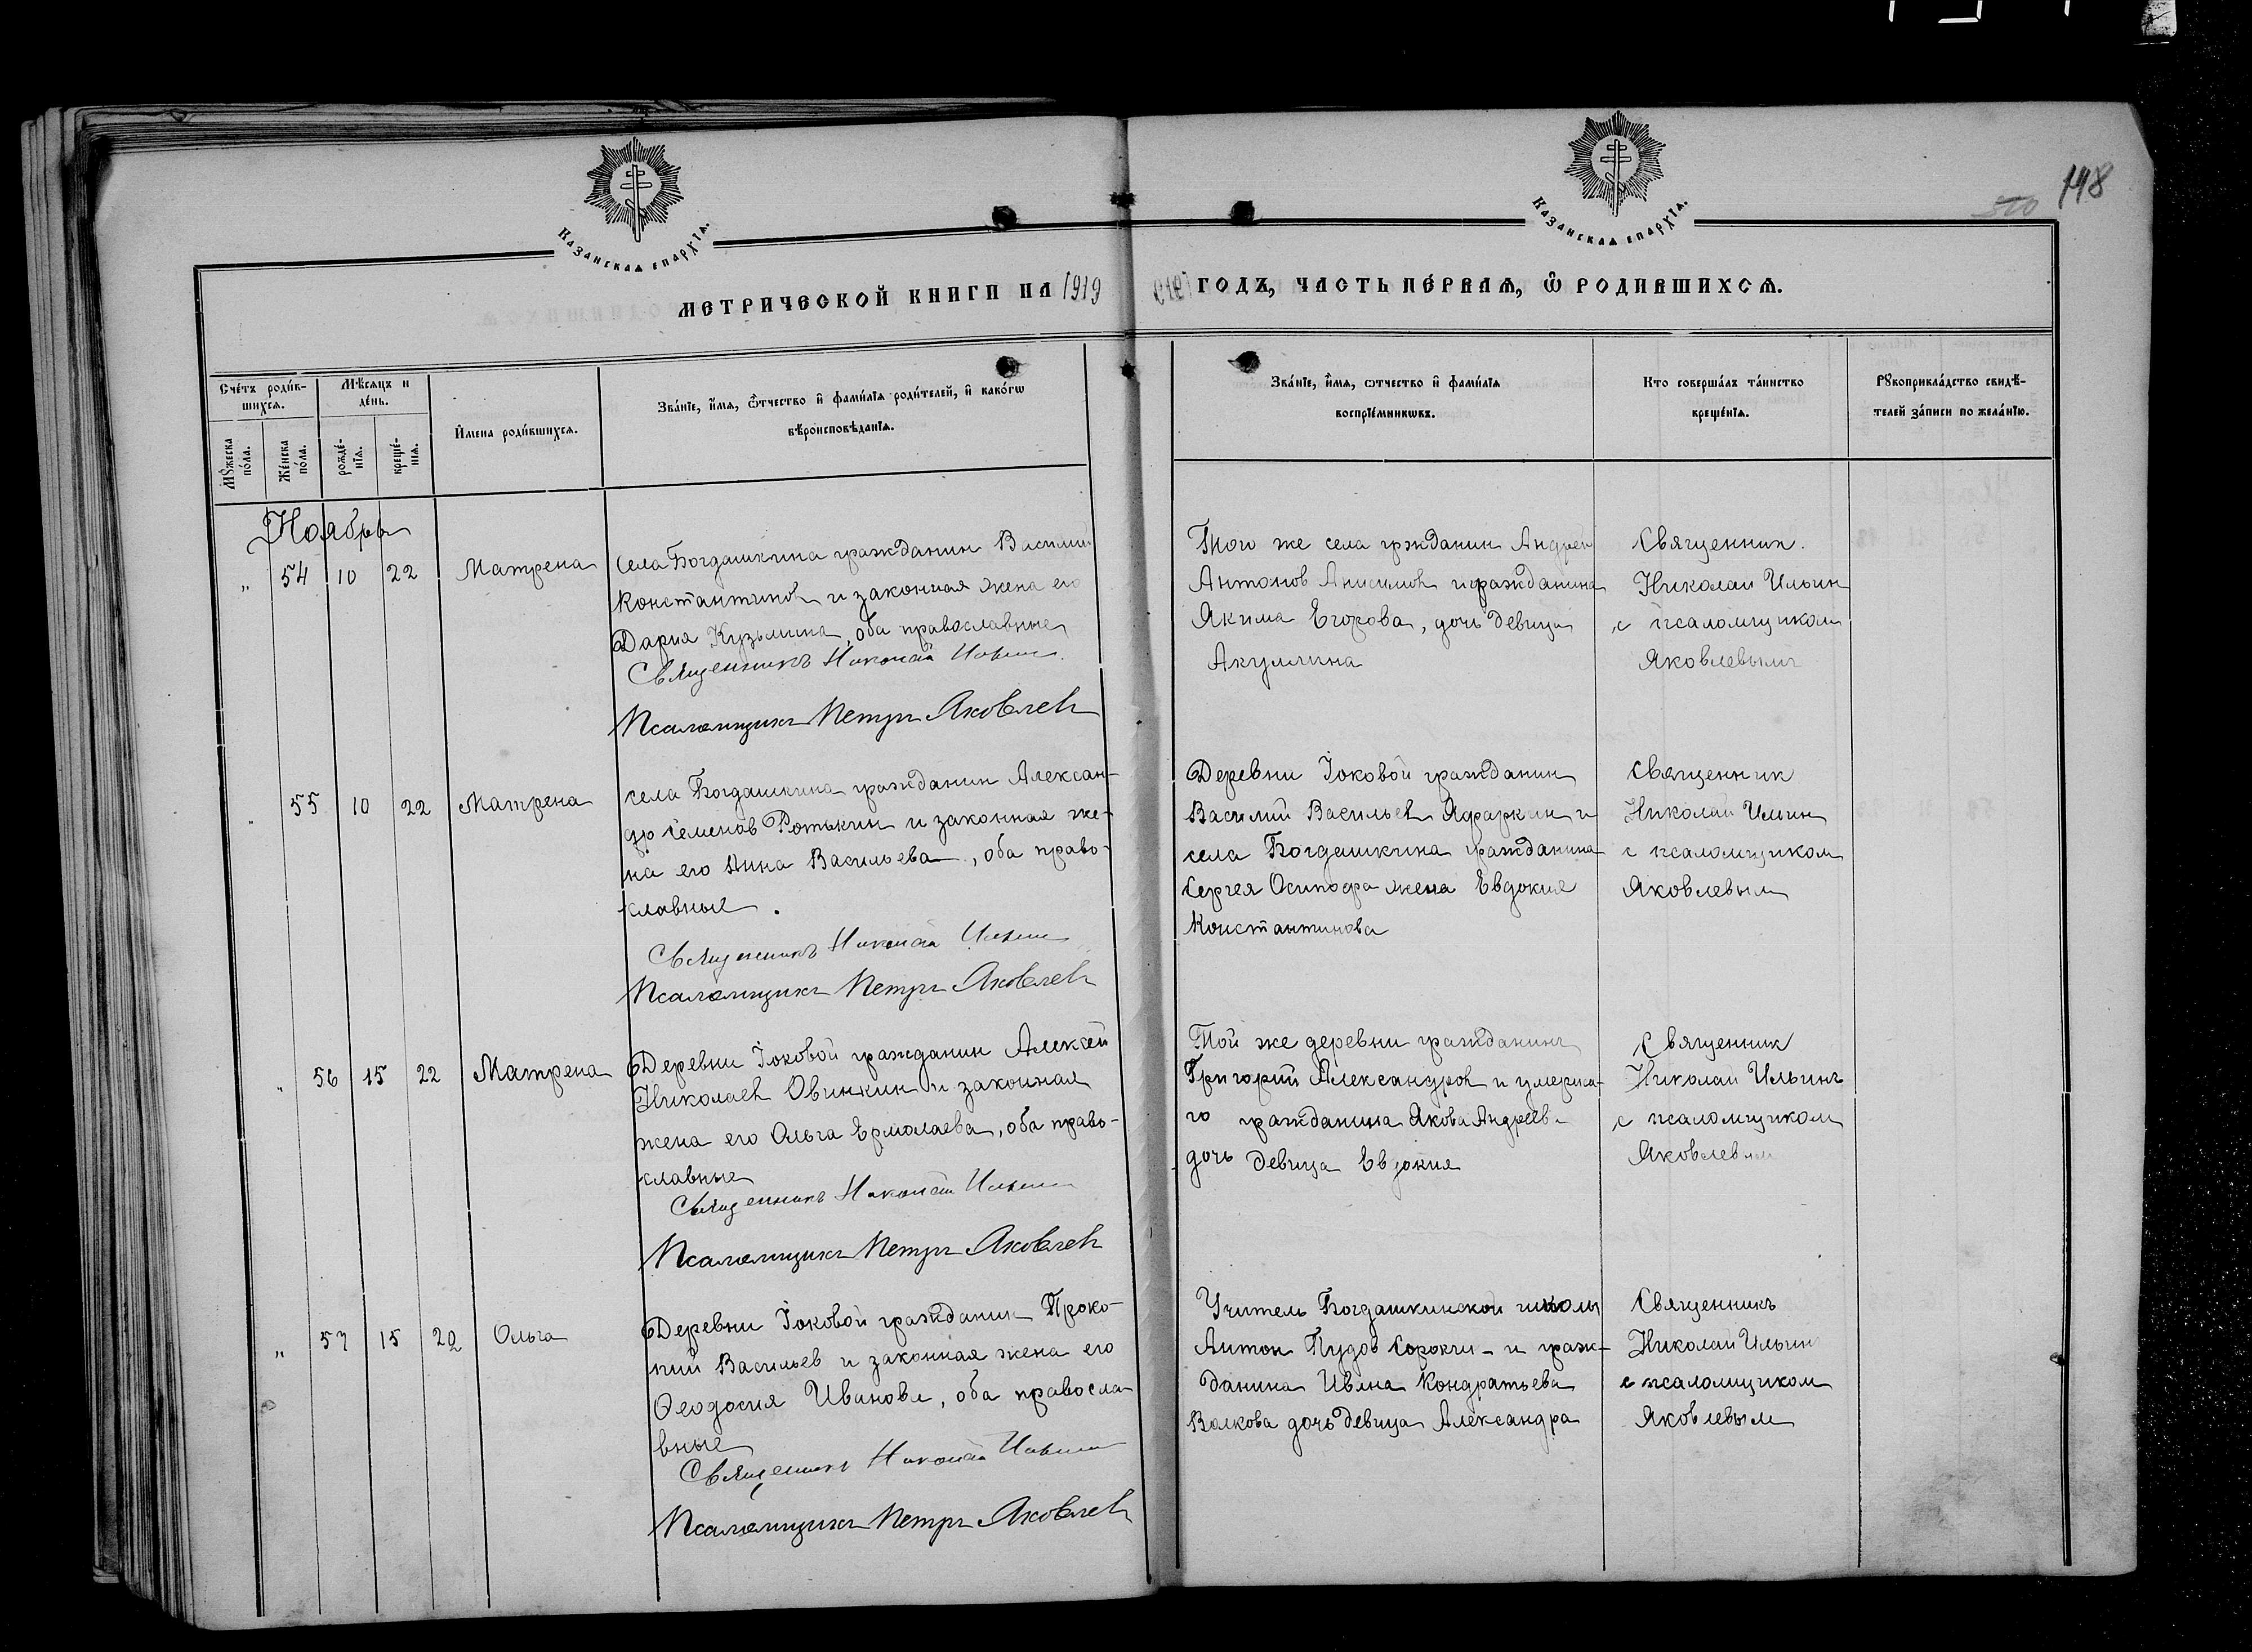 Казанская епархїя.
Казанская епархїя.
148
метрической книги на 1919
годъ, часть пе́рвая, ѡ҆ родившихся.
Сче́тъ роди́в-
шихся.
Мѣ́сяцъ и
де́нь.
И҆мена роди́вшихся.
Зва́нїе, и҆́мя, ѻ҆́тчество и҆ фами́лїя роди́телей, и҆ како́гѡ
вѣроисповѣ́данїя.
Мꙋ́жеска
по́ла.
Же́нска
по́ла.
рожде́-
нїя.
креще́-
нїя.
Зва́нїе, и҆́мя, ѻ҆тчество и҆ фами́лїя
воспрїе́мникѡвъ.
Кто совершáлъ тáинство
креще́нїя.
Рꙋкоприкла́дство свидѣ́-
телей зáписи по желáнїю.
Ноябрь
" 54 10 22 Матрена
Села Богдашкина гражданин Василий
Константинов и законная жена его
Дария Кузьмина, оба православные
Священникъ Николай Ильин
Псаломщикъ Петръ Яковлевъ
Того же села гржданин Андрей
Антонов Анисимов и гражданина
Якима Егорова, дочь девица
Акулина
Священник.
Николай Ильин
с псаломщиком
Яковлевымъ
" 55 10 22 Матрена
села Богдашкина гражданин Алексан-
др Семенов Ротькин и законная же-
на его Анна Васильева, оба право-
славные.
Священникъ Николай Ильин
Псаломщикъ Петръ Яковлевъ
Деревни Іоковой гражданин
Василий Васильев Яфаркин и
села Богдашкина гражданина
Сергея Осипофа жена Евдокия
Константинова
Священник
Николай Ильин
с псаломщиком
Яковлевым
" 56 15 22 Матрена
Деревни Іоковой гражданин Алексей
Николаев Овинкин и законная
жена его Ольга Ермолаева, оба право-
славные
Священникъ Николай Ильин
Псаломщикъ Петръ Яковлевъ
Той же деревни гражданинъ
Григорий Александров и умерша-
го гражданина Якова Андреев.
дочь девица Евдокия
Священник
Николай Ильинъ
с псаломщиком
Яковлевым
" 57 15 22 Ольга
Деревни Іоковой гражданин Проко-
пий Васильев и законная жена его
Феодосия Иванова, оба правосла-
вные
Священникъ Николай Ильин
Псаломщикъ Петръ Яковлевъ
Учитель Богдашкинской школы
Антон Пудов Сорокин и граж-
данина Ивана Кондратьева
Волкова дочь девица Александра
Священникъ
Николай Ильин
с псаломщиком
Яковлевым